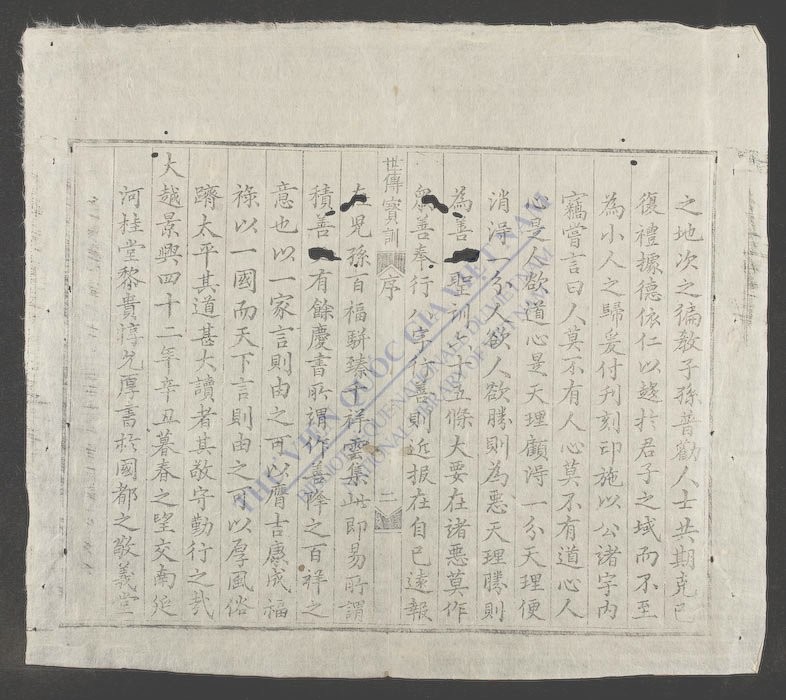 之地次之徧敎子孫普勸人士共期克己
復禮據德依仁以趨於君子之域而不至
為小人之歸爰付刊刻印施以公諸宇內
竊嘗言曰人莫不有人心莫不有道心人
心是人欲道心是天理顧淂一分天理便
消淂一分人欲人欲勝則為悪天理勝則
為善聖訓六十五條大要在諸悪莫作
衆善奉行八字行善則近报在自己遠報
世傳寳訓 序 二
在児孫百福駢臻千祥雲集此即易所謂
積善有餘慶書所謂作善降之百祥之
意也以一家言則由之可以膺吉慶成福
祿以一國而天下言則由之可以厚風俗
躋太平其道甚大讀者其敬守勤行之哉
大越景興四十二年辛丑暮春之望交南延
河桂堂黎貴惇允厚書於國都之敬義堂
THƯ VIỆN QUỐC GIA VIỆT NAM
BIBLIOTHÈQUE NATIONALE DU VIETNAM
NATIONAL LIBRARY OF VIETNAM